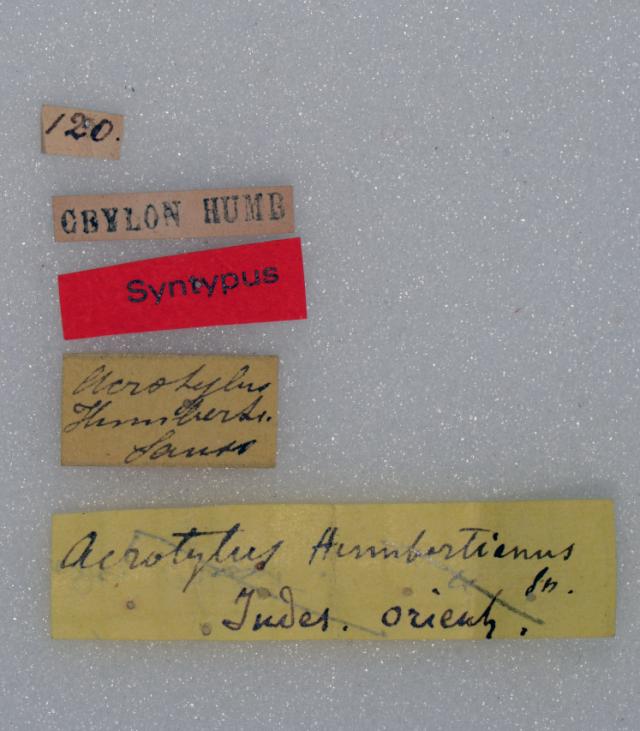 120.
CEYLON HUMB
Syntypus
Acrotylus
Humberti.
Sauss
Acrotylus Humbertianus
Sn.
Indes. orient.